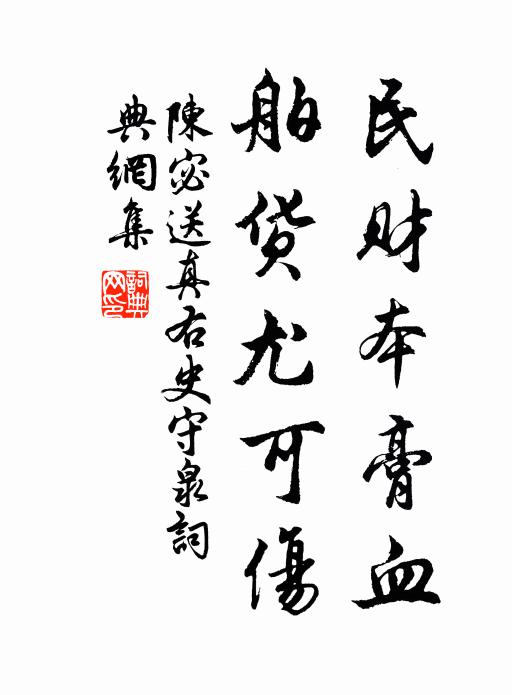 民财本膏血
舶货尤可傷
陳宓送真右史守泉詞
典網集
詞典网印